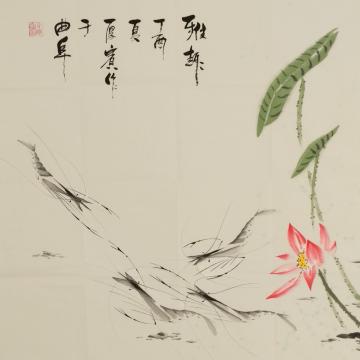 雅趣
丁酉
夏
厚宾作
于
曲阜